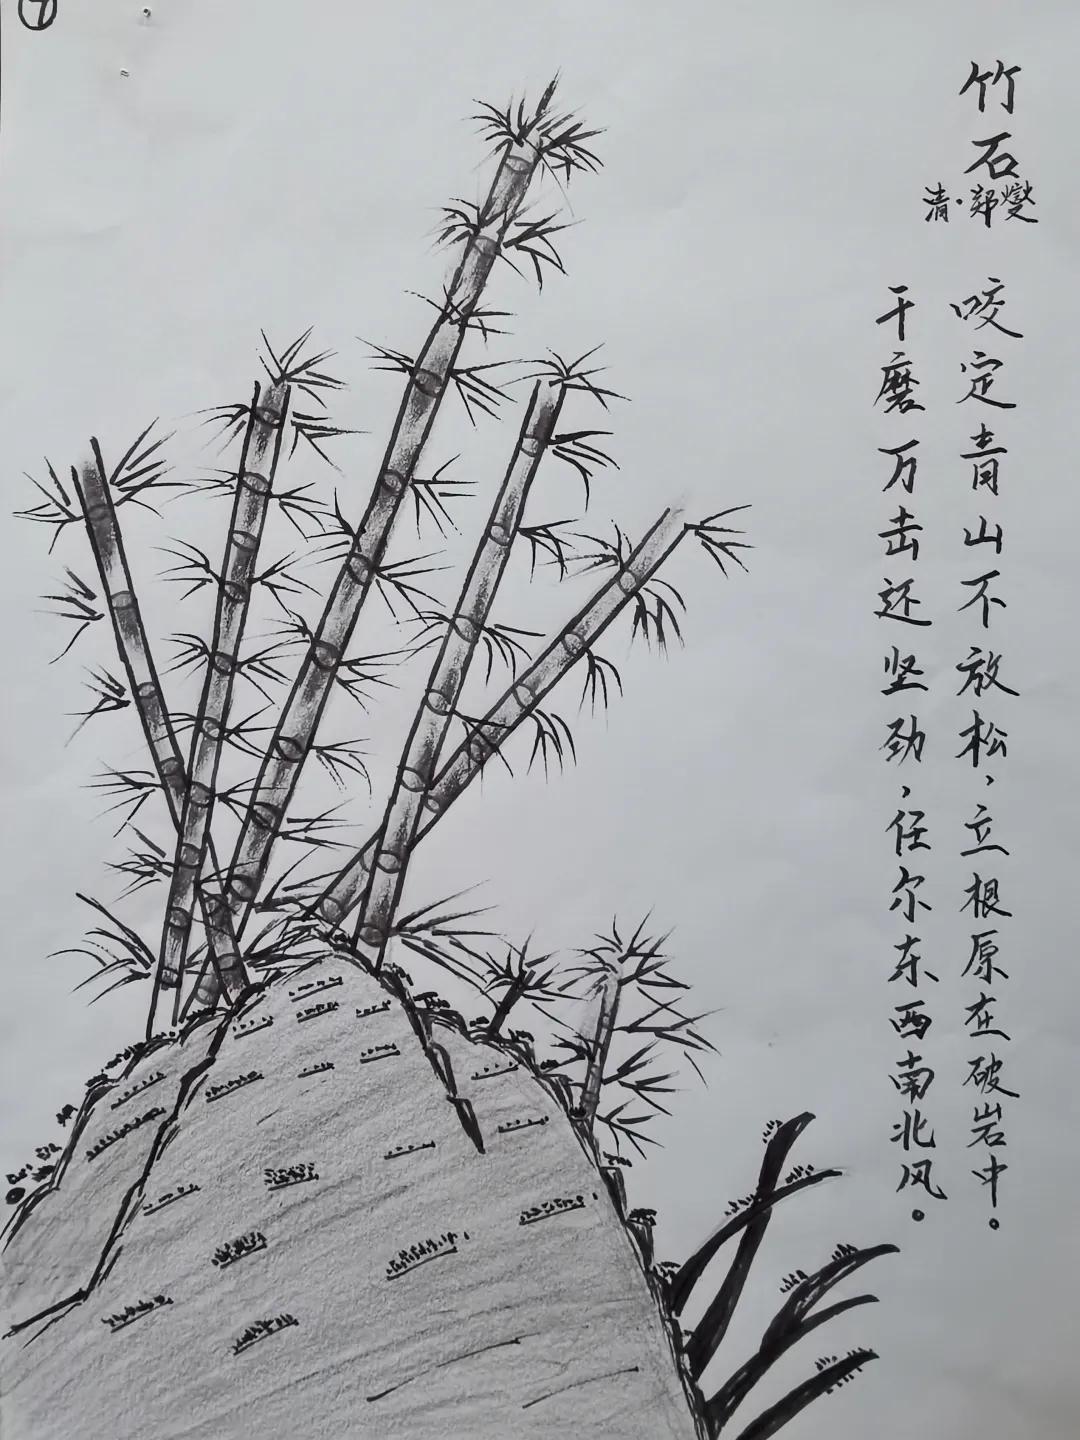 ⑦
竹石
清·郑燮
咬定青山不放松，立根原在破岩中。
干磨万击还坚劲，任尔东西南北风。